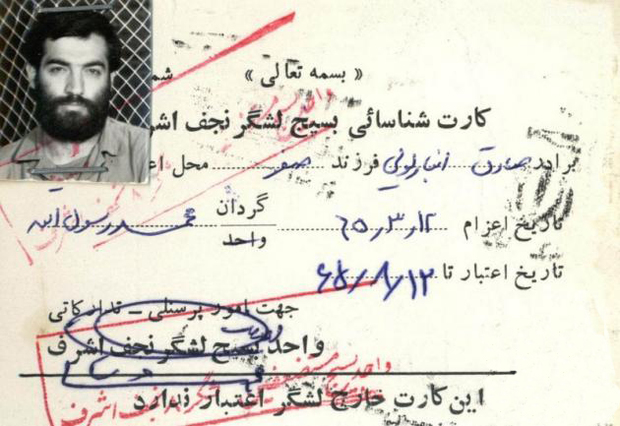 « بسمه تعالی »
کارت شناسائی بسیج لشگر نجف اشر
برادر صادق انبارلوئی فرزند صفر محل اع
تاریخ اعزام ۶۵٫۳٫۱۲ گردان محمد رسول الله
واحد
تاریخ اعتبار تا
جهت امور پرسنلی ـ تدارکاتی
واحد بسیج لشگر نجف اشرف
این کارت خارج لشگر اعتبار ندارد